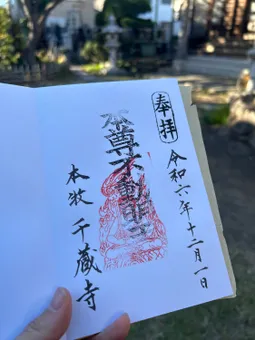 奉拝
令和六年十二月一日
本尊不動明王
本牧 千蔵寺